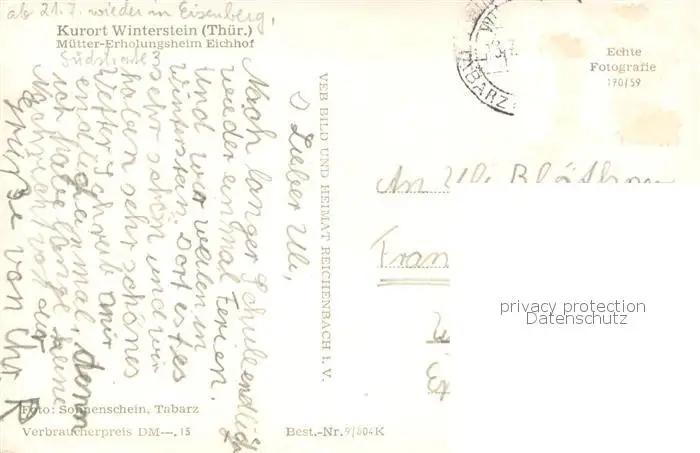 ab 21.7. wieder in Eisenberg,
Kurort Winterstein (Thür.)
Mütter-Erholungsheim Eichhof
Südstraße 3
Lieber Uli,
Nach langer Schule endlich
wieder einmal Ferien.
Und zwar weilen in
Winterstein. Dort ist es
sehr schön und wir
haben sehr schönes
Wetter. Schreib mir
endlich einmal, denn
ich habe lange keine
Nachricht von dir.
Grüße von Chr. R
VEB BILD UND HEIMAT REICHENBACH I. V.
TABARZ
Echte
Fotografie
170/59
An Uli
Fran
privacy protection
Datenschutz
Foto: Sonnenschein, Tabarz
Verbraucherpreis DM —,15
Best.-Nr. 9/604K